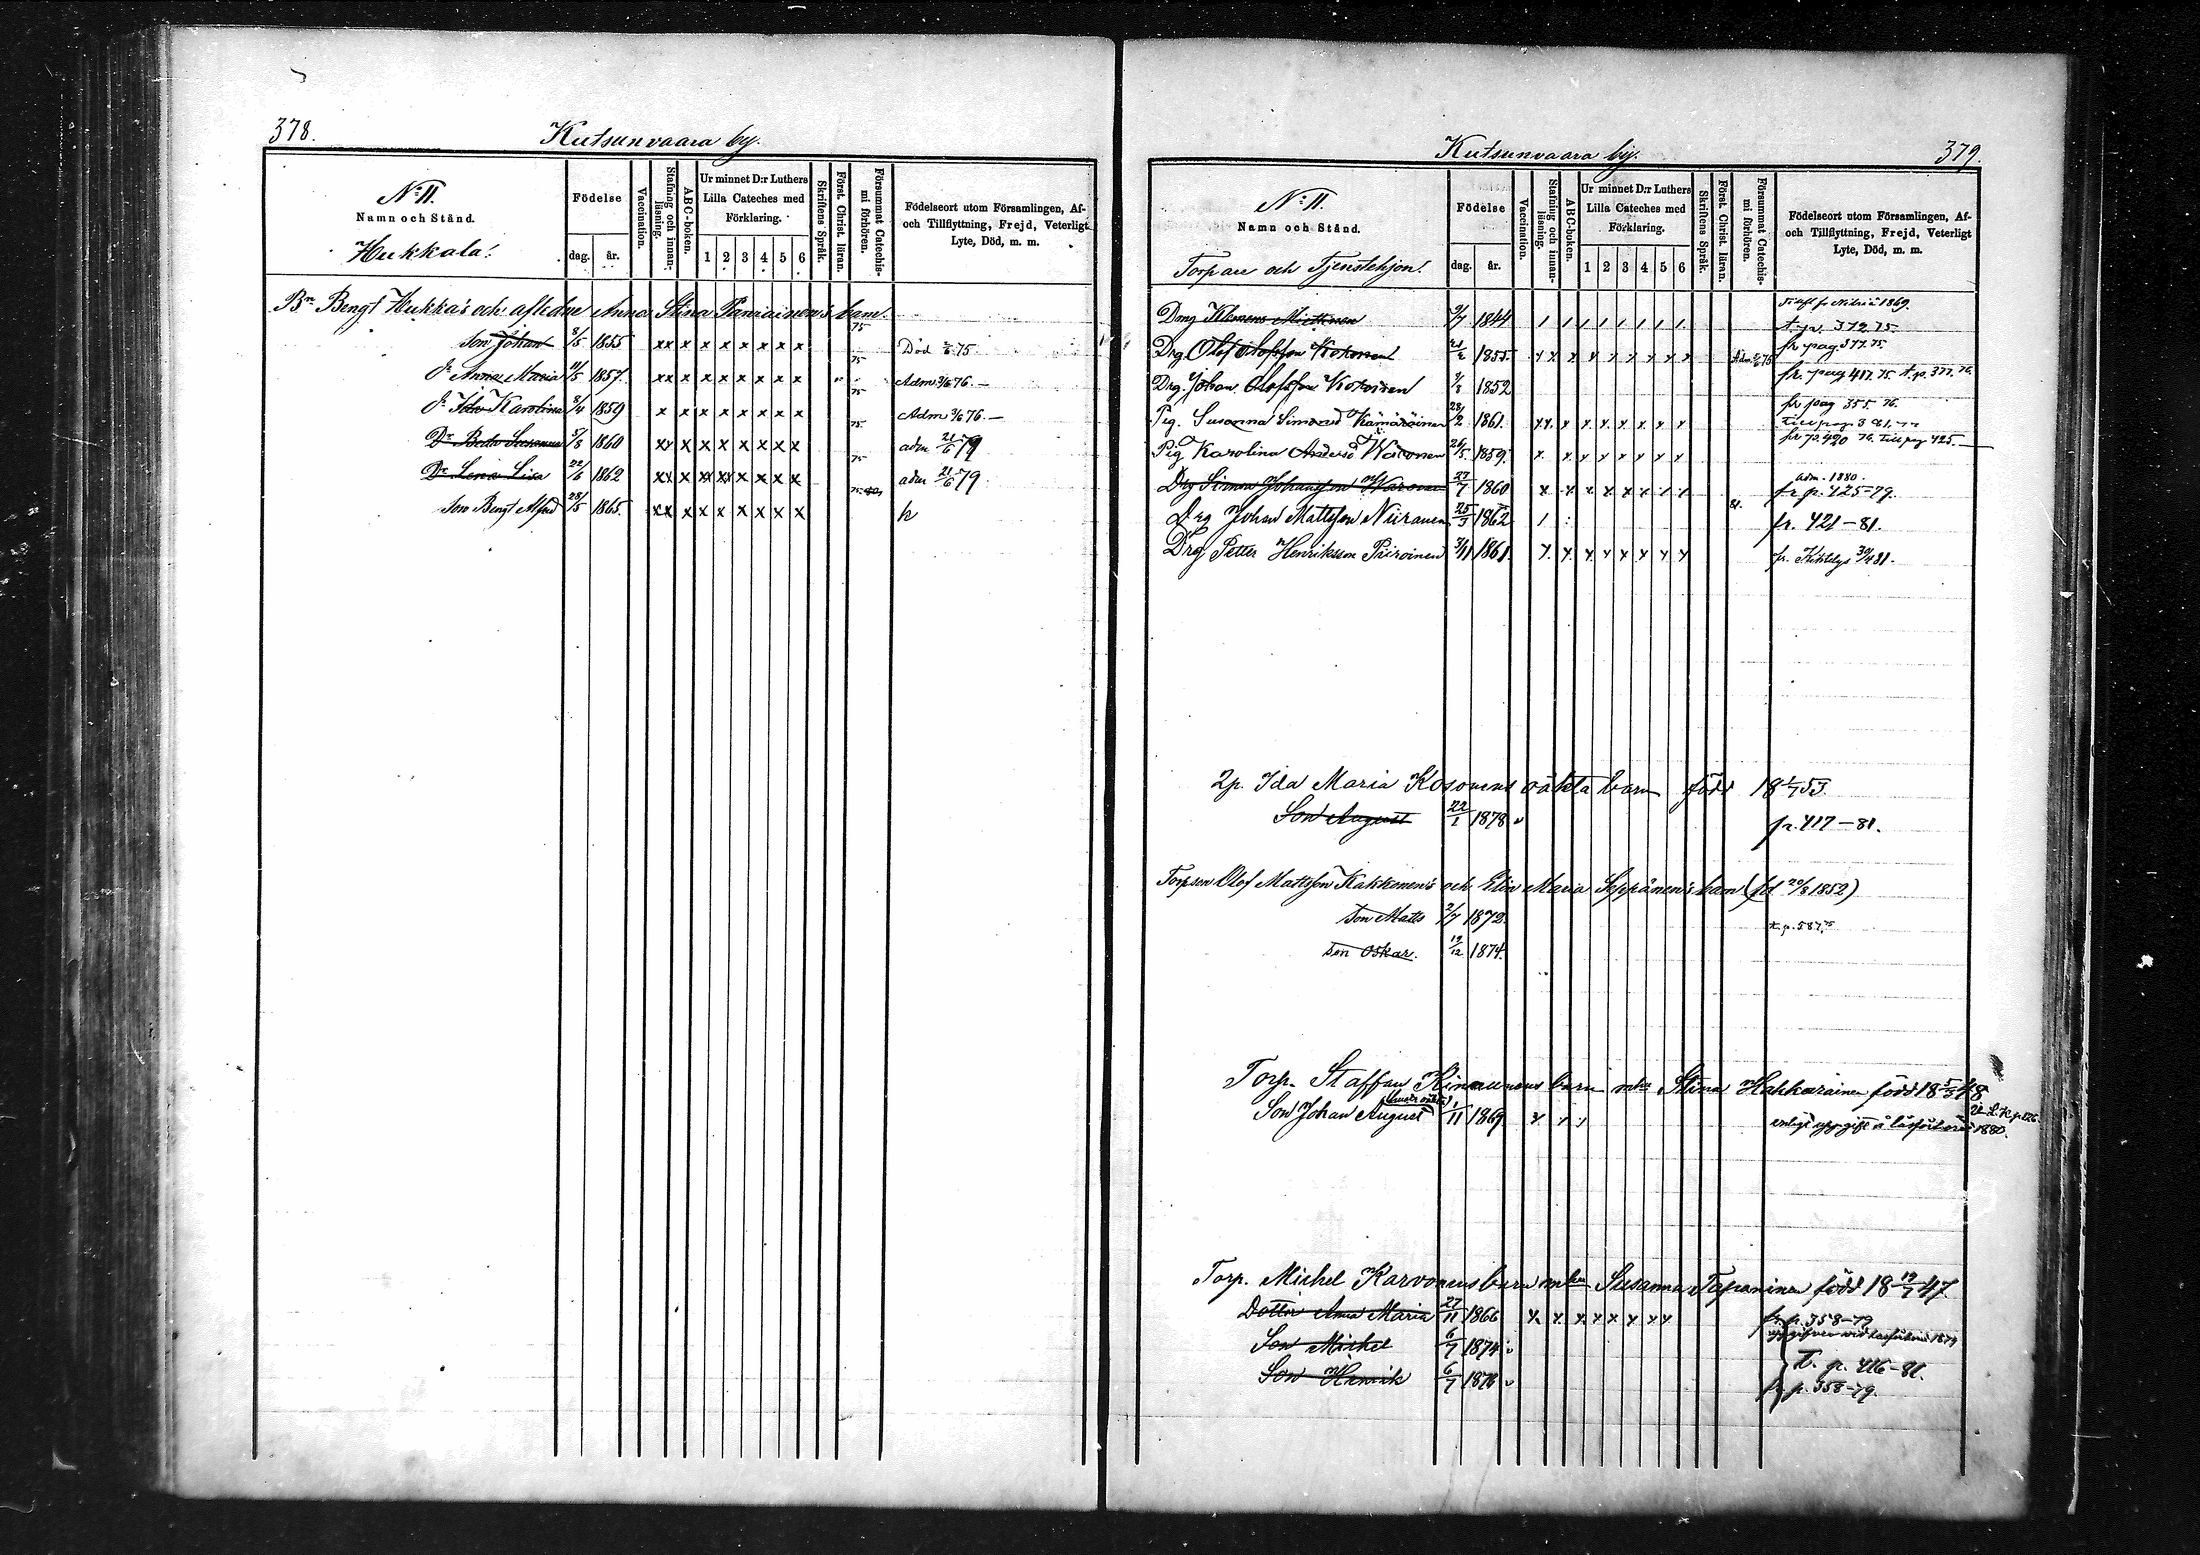 378.
Kutsunvaara by.
No II.
Namn och Stånd.
Hukkala.
Födelse
dag. år.
Vaccination.
Stafning och innanläsning.
ABC-boken.
Ur minnet D:r Luthers
Lilla Cateches med
Förklaring.
1 2 3 4 5 6
Skriftens Språk.
Först. Christ. läran.
Försummat Catechismi förhören.
Födelseort utom Församlingen, Af-
och Tillflyttning, Frejd, Veterligt
Lyte, Död, m. m.
Bn. Bengt Hukka's och aflidne Anna Stina Parviainen's barn.
Son Johan 8/5 1855 xx x x x x x x x 75 Död 75
Dr Anna Maria 11/5 1857. xx x x x x x x x 75 Adm 3/6 76.—
Dr Ida Karolina 8/4 1859 x x x x x x x x 75 Adm 3/6 76.—
Dr Beda Susanna 5/8 1860 xx x x x x x x x 75 adm 21/6 79
Dr Lena Lisa 22/6 1862 xx x xx xx x x x x 75 adm 21/6 79.
Son Bengt Alfred 28/5 1865. xx x x x x x x x 75 k
Kutsunvaara by.
379.
No II.
Namn och Stånd.
Torpare och Tjenstehjon.
Födelse
dag. år.
Vaccination.
Stafning och innanläsning.
ABC-boken.
Ur minnet D:r Luthers
Lilla Cateches med
Förklaring.
1 2 3 4 5 6
Skriftens Språk.
Först. Christ. läran.
Försummat Catechismi förhören.
Födelseort utom Församlingen, Af-
och Tillflyttning, Frejd, Veterligt
Lyte, Död, m. m.
Drng Klemens Miettinen 9/7 1844 1869.
t. p. 372 75
Drg. Olof Olofsson Kokonen 21/2 1855. Adm. 75 fr pag. 377. 75
Drg. Johan Olofsson Kokonen 9/8 1852 fr. pag 417. 75. t. p. 377. 76.
Pig. Susanna Simonsd Kämäräinen 28/2 1861. fr pag 355. 76.
Till pag 381.
Pig Karolina Andersd Väisänen 26/5 1859. fr p. 420 76. Till pag 425.
Drg Simon Johansson Waronen 27/7 1860 adm. 1880.
fr p. 425-79.
Drg Johan Mattsson Niiranen 25/3 1862 81. fr. 421-81.
Drg Petter Henriksson Piiroinen 3/11 1861 fr. Kiihtelys 30/4 81.
Ip. Ida Maria Kosonens oäkta barn född 18 1/7 53.
Son August 22/1 1878 v fr. 417-81.
Torpson Olof Mattsson Kakkonen's och Elin Maria Seppänen's barn (fd 20/8 1852)
Son Matts 2/7 1872. t. p. 587.75
Son Oskar. 19/12 1874.
Torp. Staffan Kinnunens barn m. hu Stina Hakkarainen född 18 5/3 48
Son Johan August 1/11 1869
enligt uppgift å läsförhöret 1880.
Torp. Michel Karvonens barn m. hu Susanna Tapaninen född 18 19/7 47.
Dotter Anna Maria 27/11 1866 x x x x x x x x fr p. 358-79
Son Michel 6/7 1874 v
t. p. 416-81.
Son Henrik 6/7 1876 v fr p. 358-79.